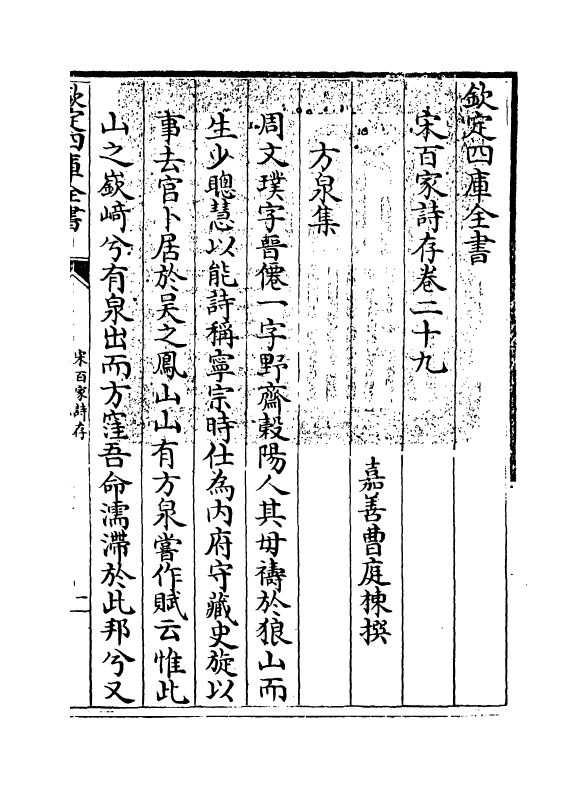 欽定四庫全書
宋百家詩存卷二十九
嘉善曹庭棟撰
方泉集
周文璞字晉僊一字野齋榖陽人其母禱於狼山而
生少聰慧以能詩稱寧宗時仕為内府守藏史旋以
事去官卜居於吴之鳳山山有方泉嘗作賦云惟此
山之嶔﨑兮有泉出而方窪吾命濡滯於此邦兮又
欽定四庫全書
宋百家詩存